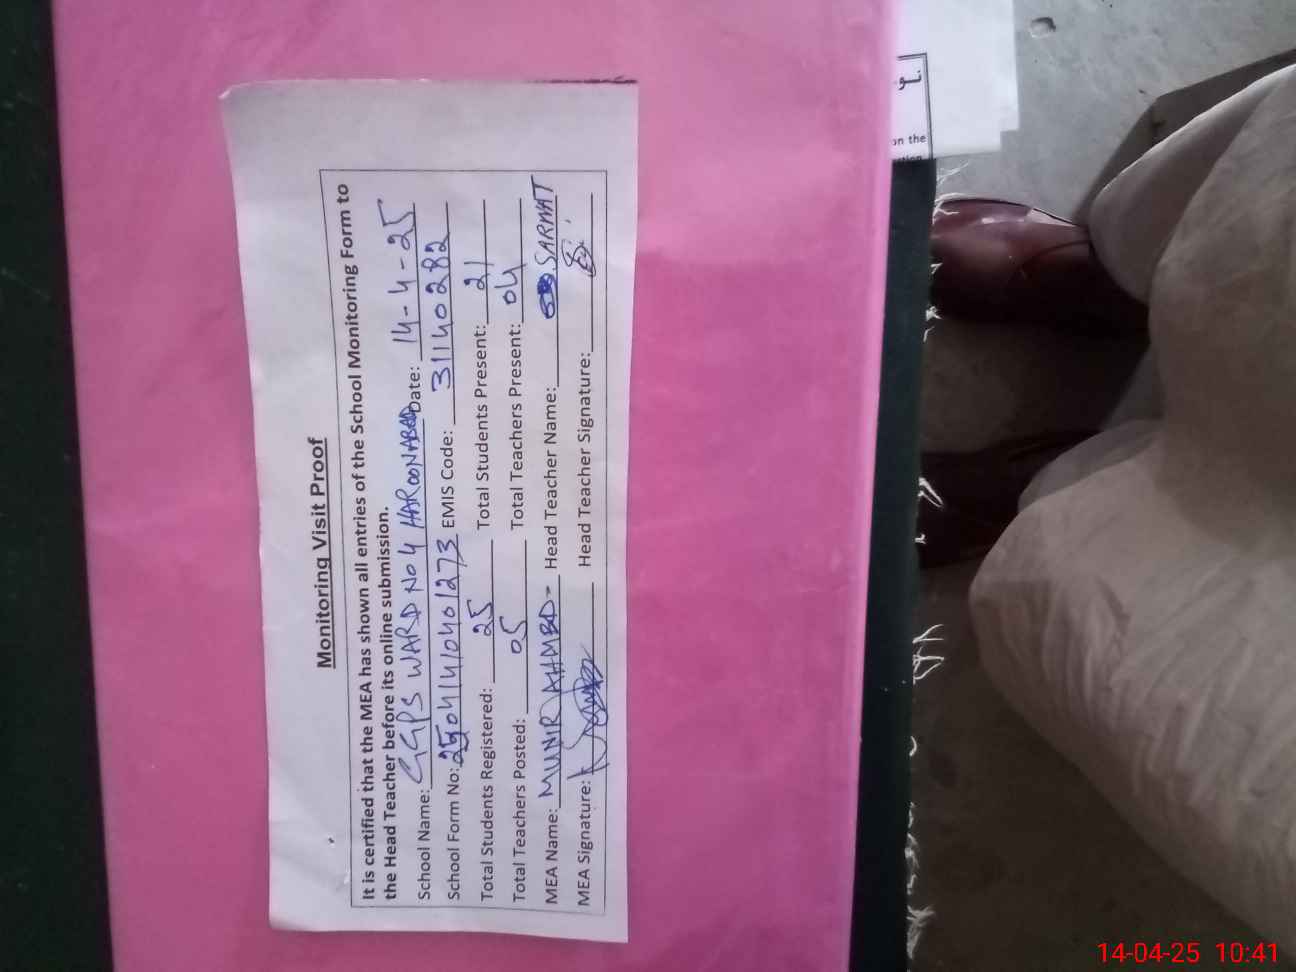 Monitoring Visit Proof
It is certified that the MEA has shown all entries of the School Monitoring Form to
the Head Teacher before its online submission.
School Name: GGPS WARD NO 4 HAROONABAD Date: 14-4-25
School Form No: 25041410401273 EMIS Code: 31140282
Total Students Registered: 25 Total Students Present: 21
Total Teachers Posted: 05 Total Teachers Present: 04
MEA Name: MUNIR AHMED- Head Teacher Name: SARWAT
MEA Signature: Head Teacher Signature:
on the
14-04-25 10:41